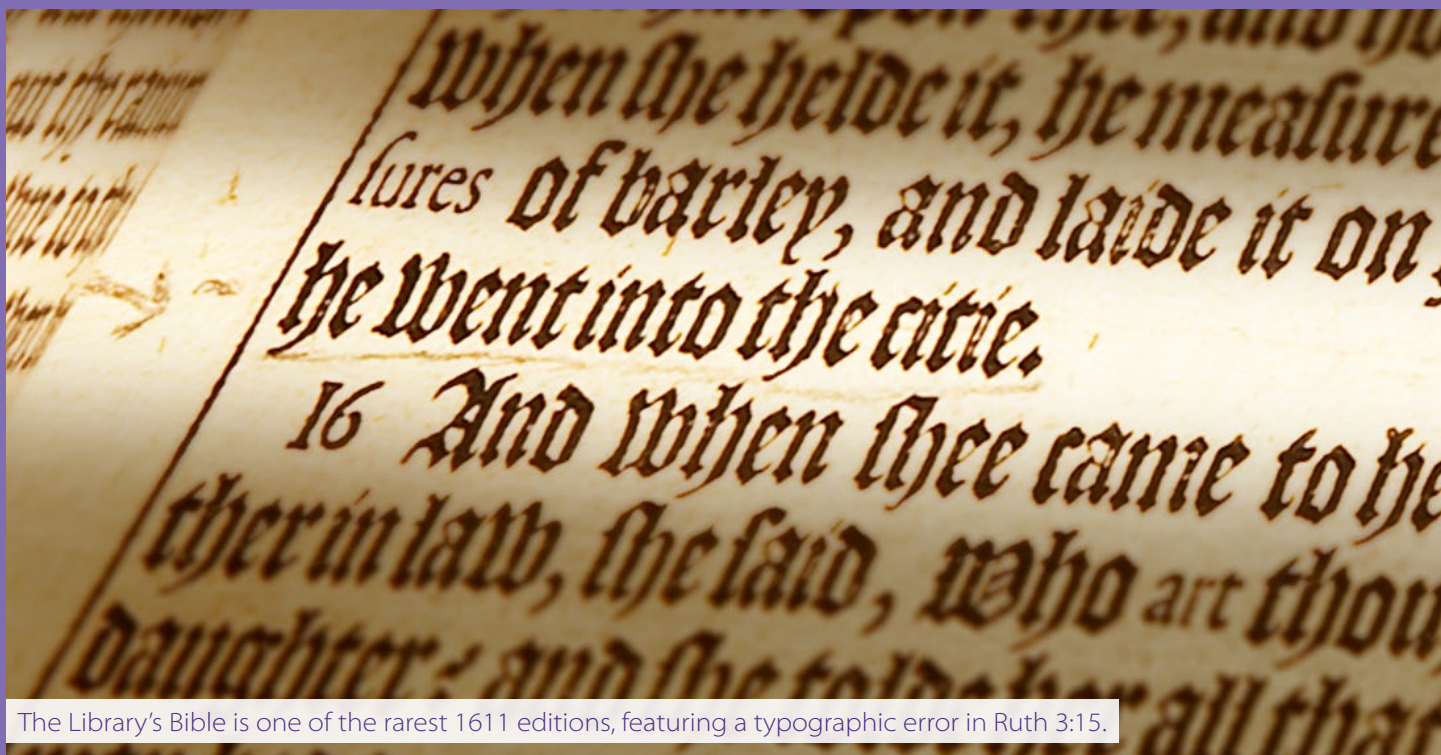 upon thee, and ho
when ſhe helde it, he meaſure
ſures of barley, and laide it on
he went into the citie.
16 And when ſhee came to he
ther in law, ſhe ſaid, Who art thou
daughter: and ſhe tolde her all that
The Library's Bible is one of the rarest 1611 editions, featuring a typographic error in Ruth 3:15.